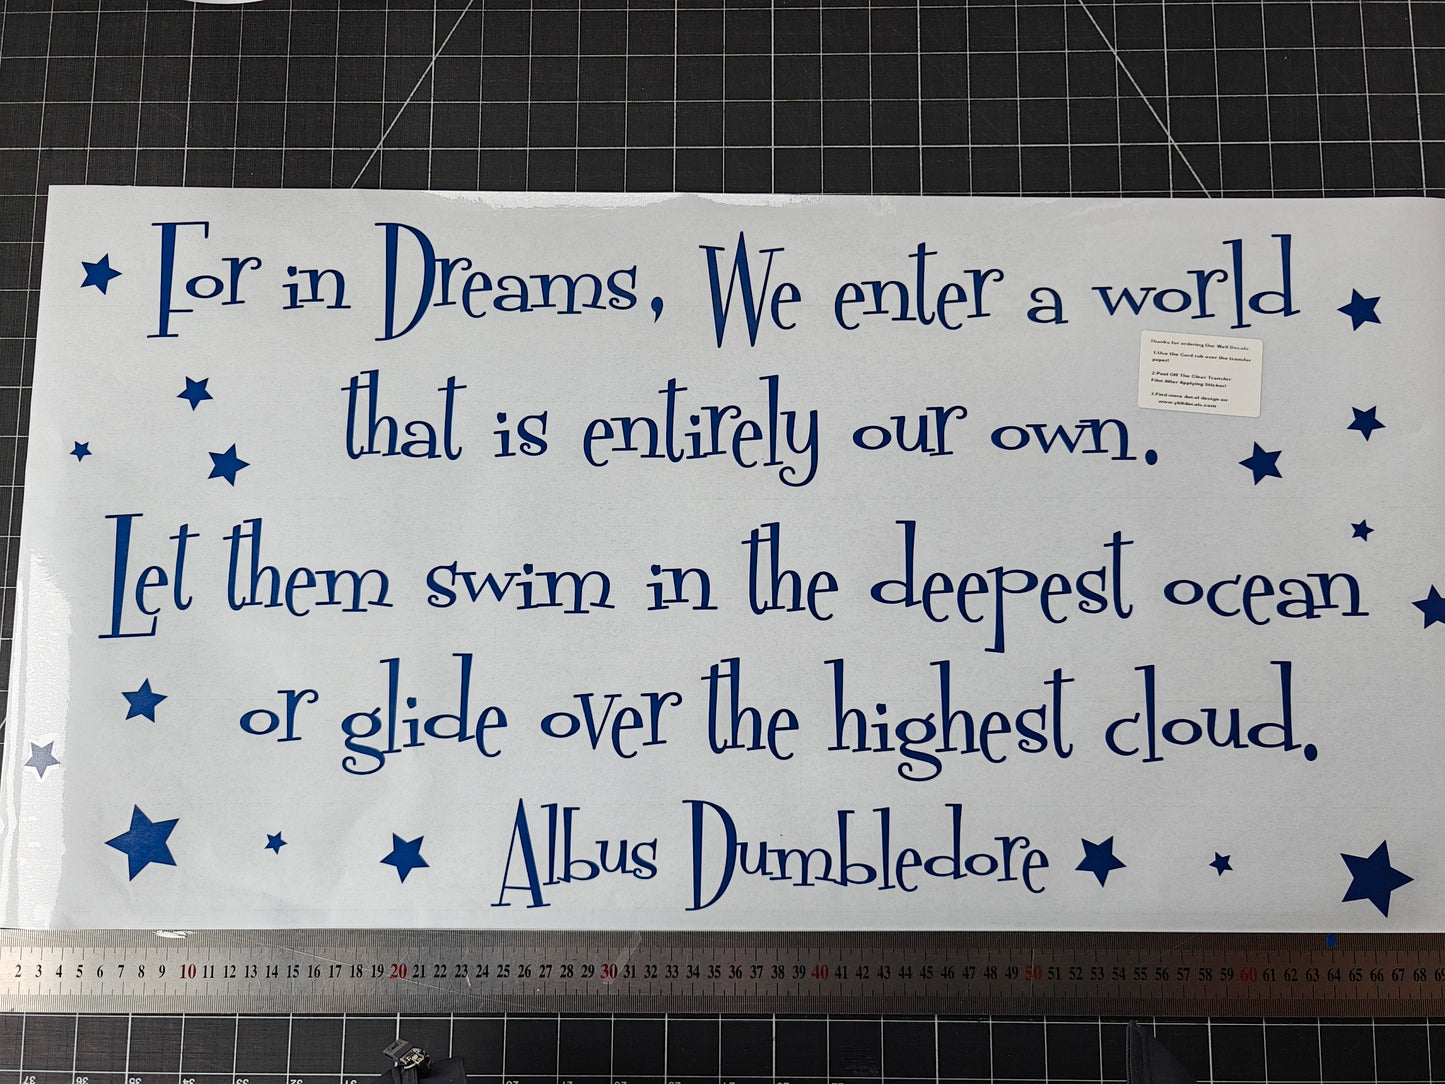 For in Dreams, We enter a world
Thanks for ordering Our Wall Decals
1.Use the Card rub over the transfer
paper!
2.Peel Off The Clear Transfer
Film After Applying Sticker!
3.Find more decal design on
www.ykitdecals.com
that is entirely our own.
Let them swim in the deepest ocean
or glide over the highest cloud.
Albus Dumbledore
2 3 4 5 6 7 8 9 10 11 12 13 14 15 16 17 18 19 20 21 22 23 24 25 26 27 28 29 30 31 32 33 34 35 36 37 38 39 40 41 42 43 44 45 46 47 48 49 50 51 52 53 54 55 56 57 58 59 60 61 62 63 64 65 66 67 68 69
37 36 35 34 33 32 31